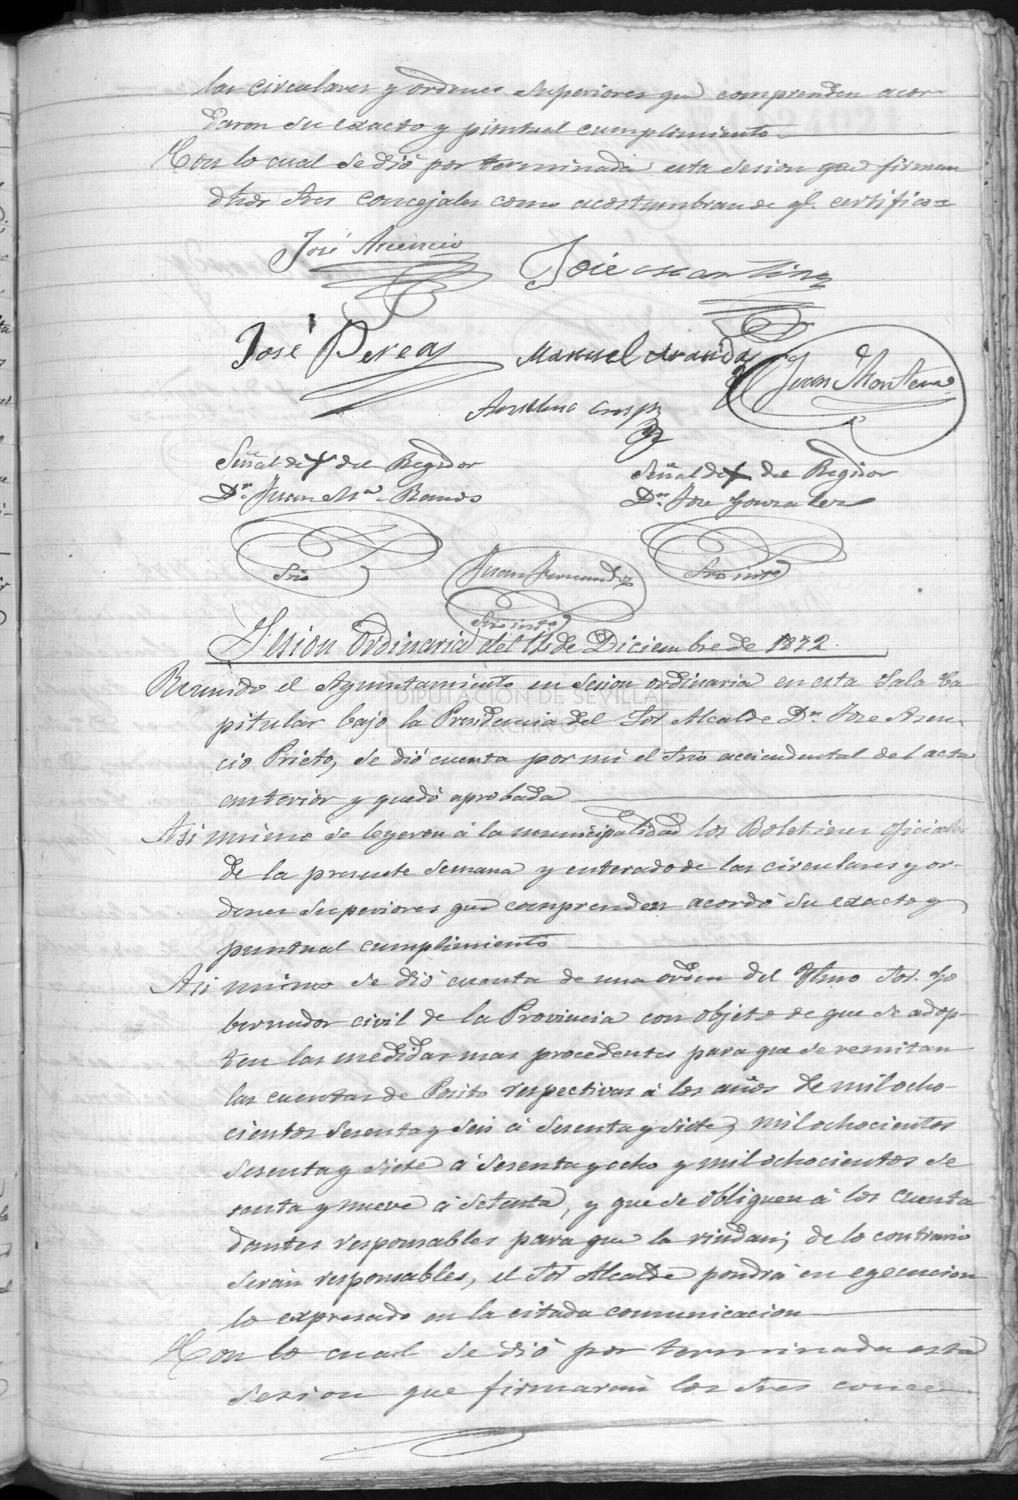 las circulares y ordenes superiores que comprenden acor-
daron su exacto y puntual cumplimiento
Con lo cual se dió por terminada esta sesion que firman
dhos Sres Concejales como acostumbran de qe. certifico=
José Asencio
José Martinez
José Pereas
Manuel Aranda
Juan Montero
Anselmo Crespo
Señal de X del Regidor
Señal de X del Regidor
Dn. Juan Ma. Ramos
Dn. Jose Gonzalez
Srio
Juan Fernandez
Srio intº
Srio intº
Sesion Ordinaria del de Diciembre de 1872.
DIPUTACIÓN DE SEVILLA
ARCHIVO
Reunido el Ayuntamiento en sesion ordinaria en esta Sala Ca
pitular bajo la Presidencia del Sor Alcalde Dn. Jose Asen-
cio Prieto, se dió cuenta por mi el Srio accicendental del acta
anterior y quedó aprobada
Asi mismo se leyeron á la municipalidad los Boletines oficiales
de la presente semana y enterado de las circulares y or-
denes superiores que comprenden acordó su exacto y
puntual cumplimiento
Asi mismo se dió cuenta de una orden del Yltmo Sor. Go
bernador civil de la Provincia con objeto de que se adop-
ten las medidas mas procedentes para que se remitan
las cuentas de Posito respectivas á los años de mil ocho-
cientos sesenta y seis á sesenta y siete, mil ochocientos
sesenta y siete á sesenta y ocho y mil ochocientos se
senta y nueve á setenta, y que se obliguen á los cuenta
dantes responsables para que la rindan; de lo contrario
serán responsables, el Sor Alcalde pondrá en egecucion
lo expresado en la citada comunicacion
Con lo cual se dió por terminada esta
sesion que firmaran los Sres conce